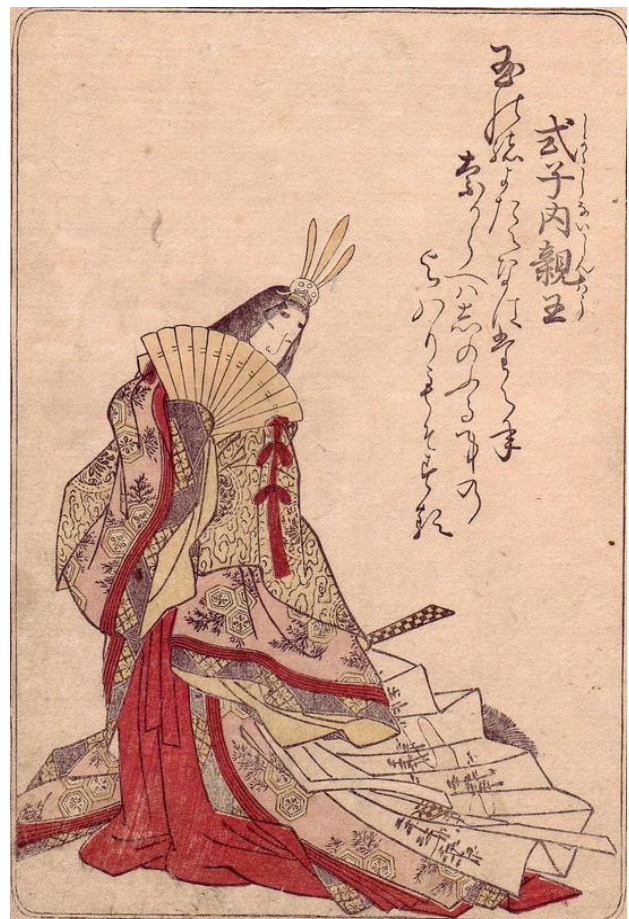 しよくしないしんわう
式子内親王
玉の緒よたえなはたえね
なからへハしのふる事の
よハりもそする